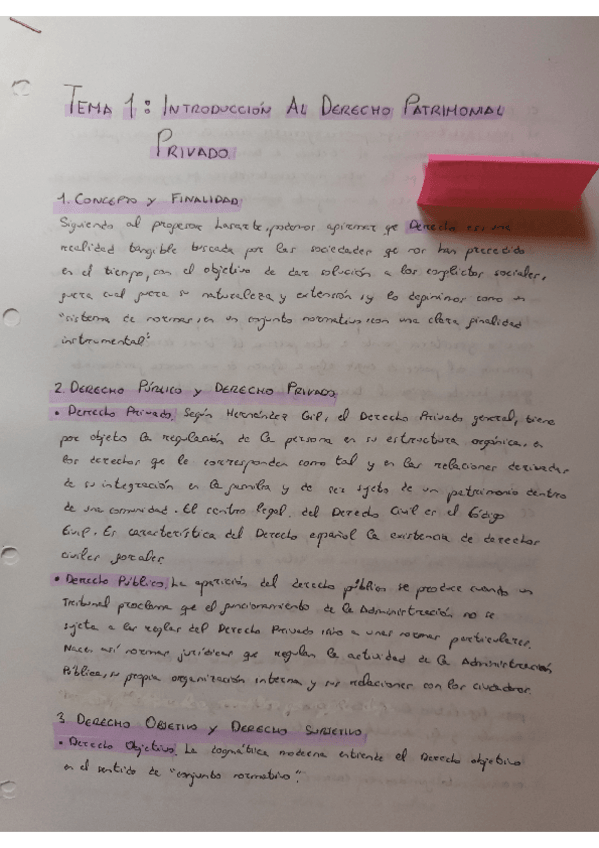 TEMA 1: INTRODUCCIÓN AL DERECHO PATRIMONIAL
PRIVADO.
1. CONCEPTO Y FINALIDAD
Siguiendo al profesor Lasarte, podemos afirmar qe Derecho es una
realidad tangible buscada por las sociedades qe nos han precedido
en el tiempo, con el objetivo de dar solución a los conflictos sociales,
fuera cual fuera su naturaleza y extensión y lo definimos como un
"sistema de normas, en un conjunto normativo con una clara finalidad
instrumental".
2. DERECHO PÚBLICO Y DERECHO PRIVADO
• Derecho Privado. Según Hernández Gil, el Derecho Privado general, tiene
por objeto la regulación de la persona en su estructura orgánica, en
los derechos qe le corresponden como tal y en las relaciones derivadas
de su integración en la familia y de ser sujeto de un patrimonio dentro
de una comunidad. El centro legal del Derecho Civil es el Código
Civil. Es característica del Derecho español la existencia de derechos
civiles forales.
• Derecho Público. La aparición del derecho público se produce cuando un
Tribunal proclama que el funcionamiento de la Administración no se
sujeta a las reglas del Derecho Privado sino a unas normas particulares.
Nacen así normas jurídicas qe regulan la actividad de la Administración
Pública, su propia organización interna y sus relaciones con los ciudadanos.
3. DERECHO OBJETIVO Y DERECHO SUBJETIVO.
• Derecho Objetivo. La dogmática moderna entiende el Derecho objetivo
en el sentido de "conjunto normativo".